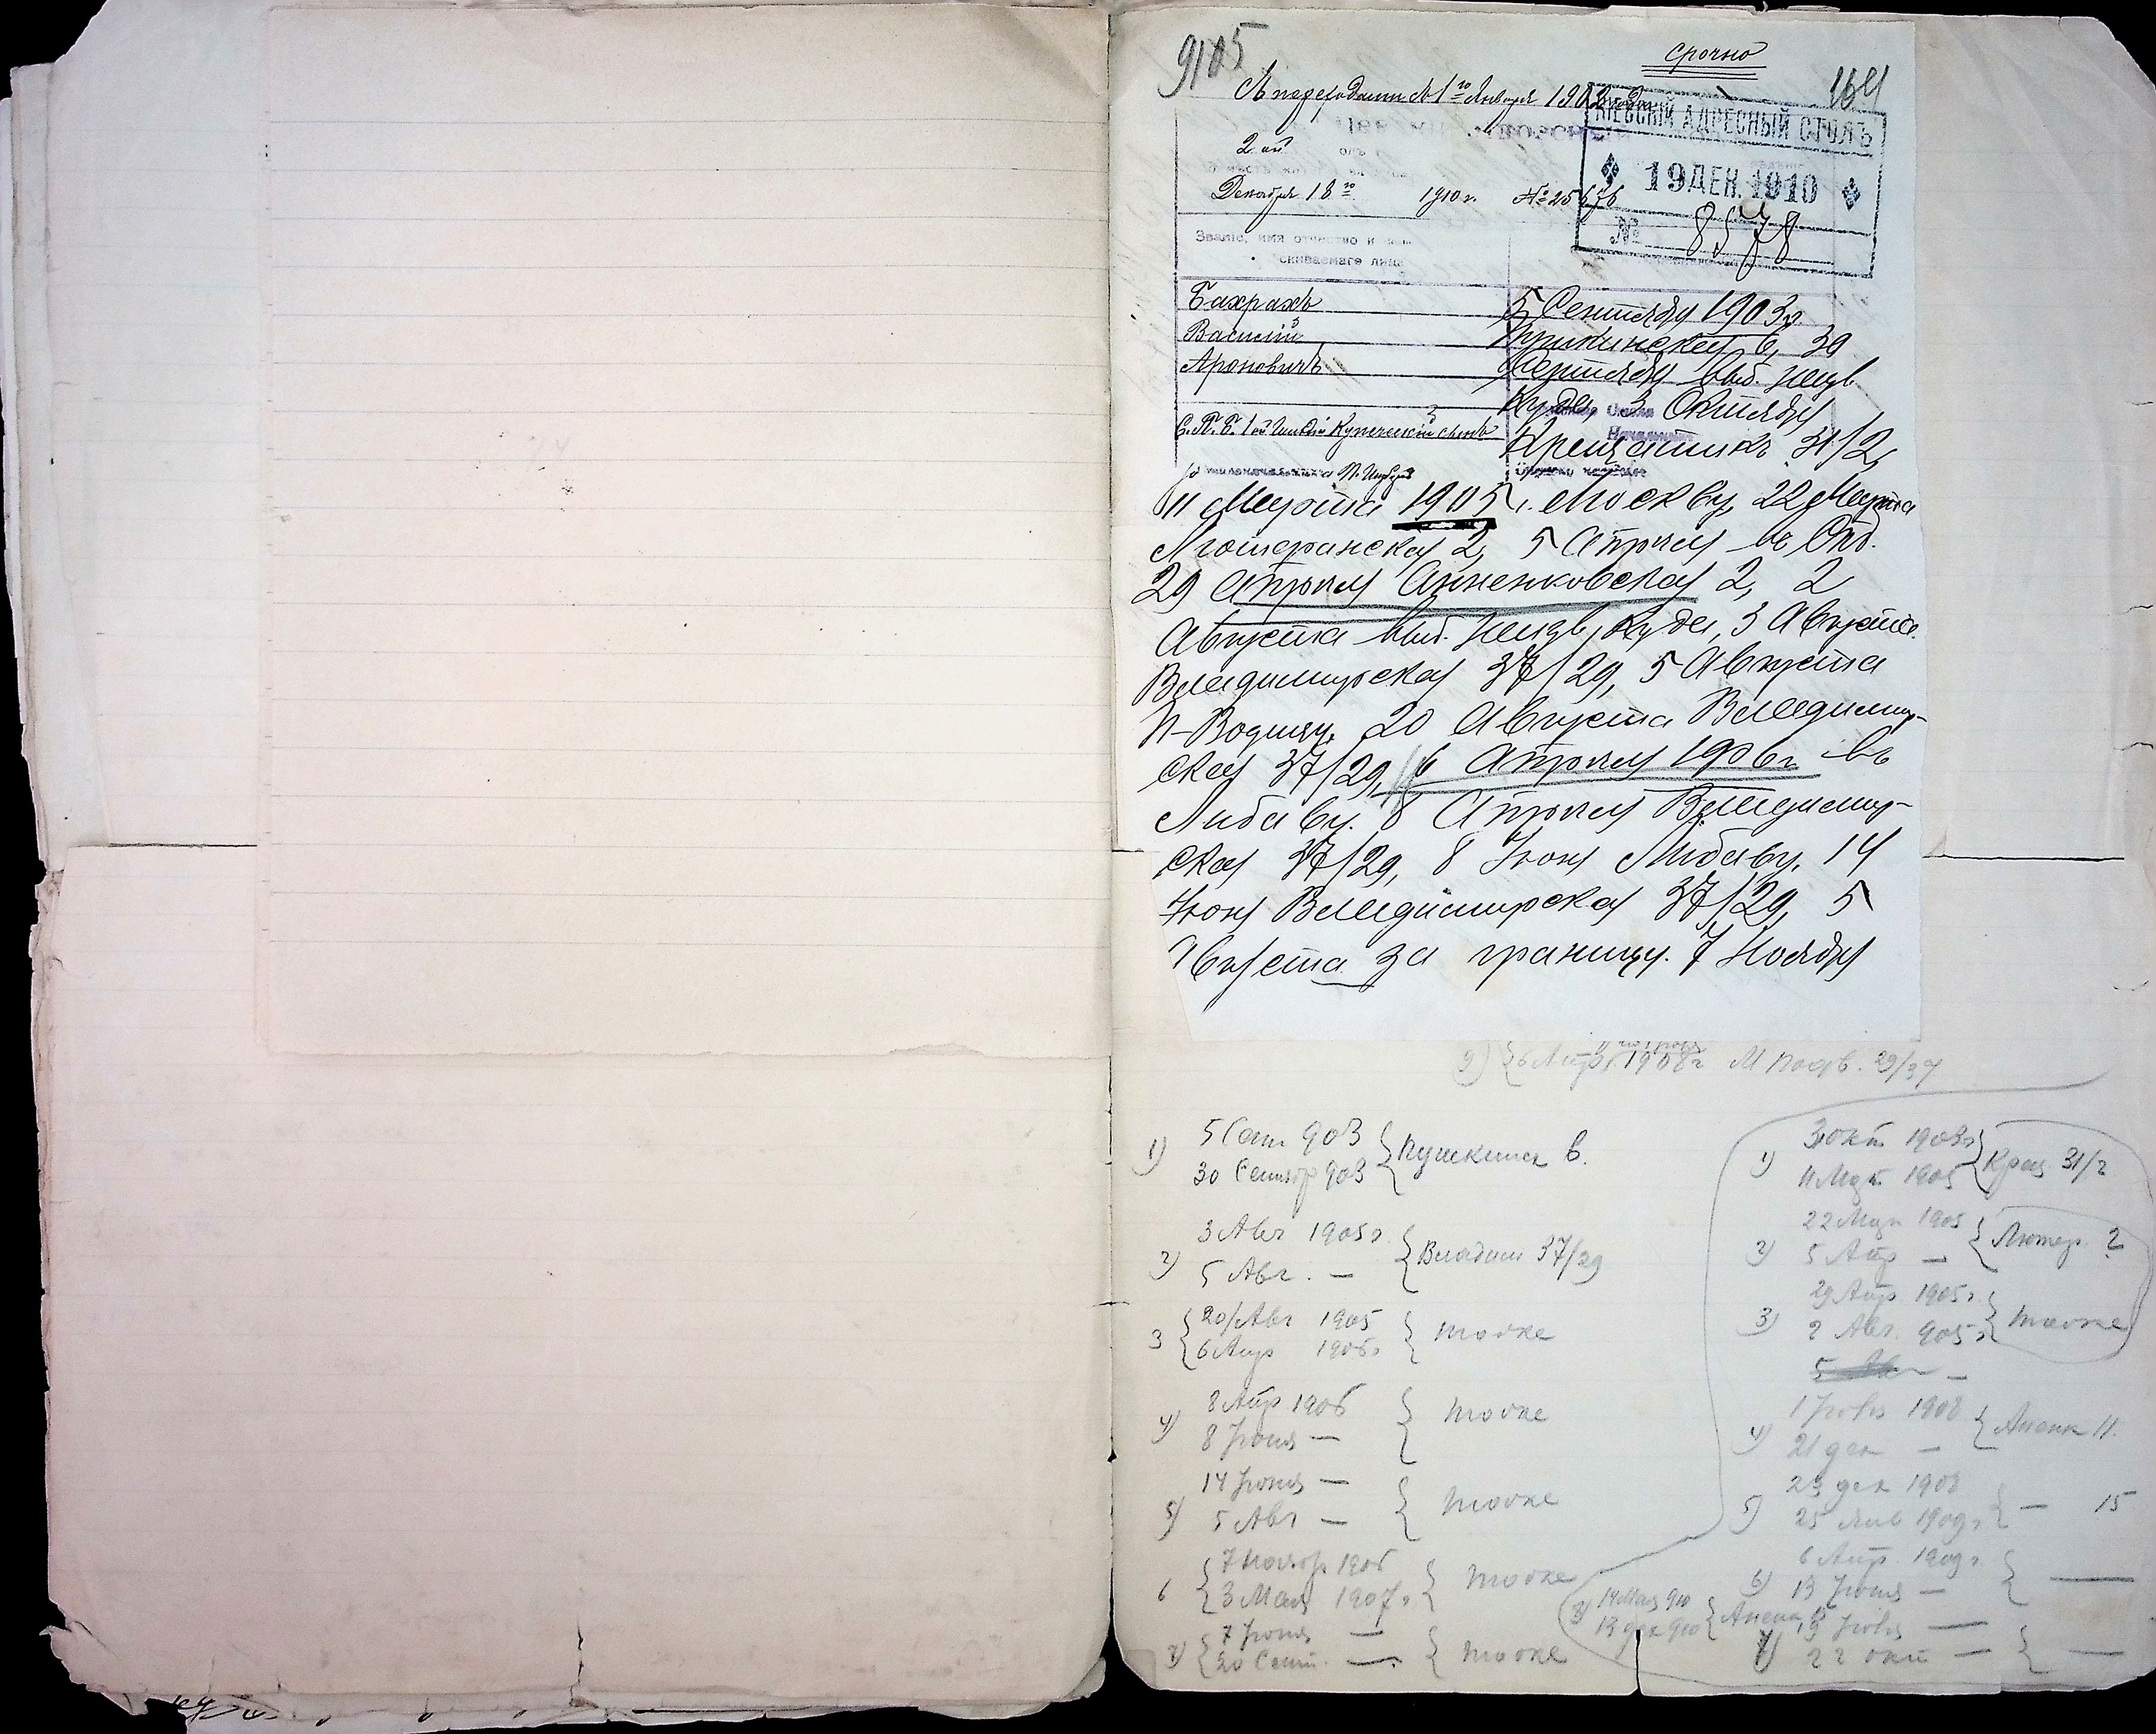 9105
Срочно
164
КІЕВСКІЙ АДРЕСНЫЙ СТОЛЪ
19 ДЕК. 1910
№ 8578
2 ой
Декабря 18 го 1910 г. № 25676
Званіе, имя отчество и
скиваемаго лица
Бахрахъ
Василій
Ароновичъ
С.П.Б. 1 ой Купеческій сынъ
5 Сентября 1903 г.
Пушкинская 6, 30
Сентября выб. неизв.
куда, 3 Октября
Крещатикъ 31/2,
11 Марта 1905 г. Москву, 22 Марта
Лютеранская 2, 5 Апрѣля въ
29 Апрѣля Анненковская 2, 2
Августа выб. неизв. куда, 3 Августа
Владимирская 37/29, 5 Августа
П-Водицу, 20 Августа Владимир-
ская 37/29, 6 Апрѣля 1906 г. въ
Либаву. 8 Апрѣля Владимир-
ская 37/29, 8 Іюня Либаву, 14
Іюня Владимирская 37/29, 5
Августа за границу. 7 Ноября
9) 6 1908 г М 29/37
1) 5 Сент 903
30 Сентяб 903 Пушкинск 6.
2) 3 Авг 1905 г.
5 Авг. — Владим 37/29
3 20 Авг 1905
6 Апр 1906 г тоже
4) 8 Апр 1906
8 Іюня — тоже
5) 14 Іюня —
5 Авг — тоже
6 7 Нояб 1906
3 Мая 1907 г. тоже
7) 7 Іюня —
20 Сент. — тоже
1) 3 окт 1903 г
11 Мар. 1905 Крещ 31/2
2) 22 Мар 1905
5 Апр — Лютер. 2
3) 29 Апр 1905 г.
2 Авг. 905 г тоже
4) 1 Іюля 1908
21 дек — Аненк 11.
5) 23 дек 1908
25 Янв 1909 г — 15
6) 6 Апр. 1909 г.
13 Іюня — —
7) 13 Іюля —
22 окт — —
8) 14 Мая 910
13 дек 910 Аненк 15